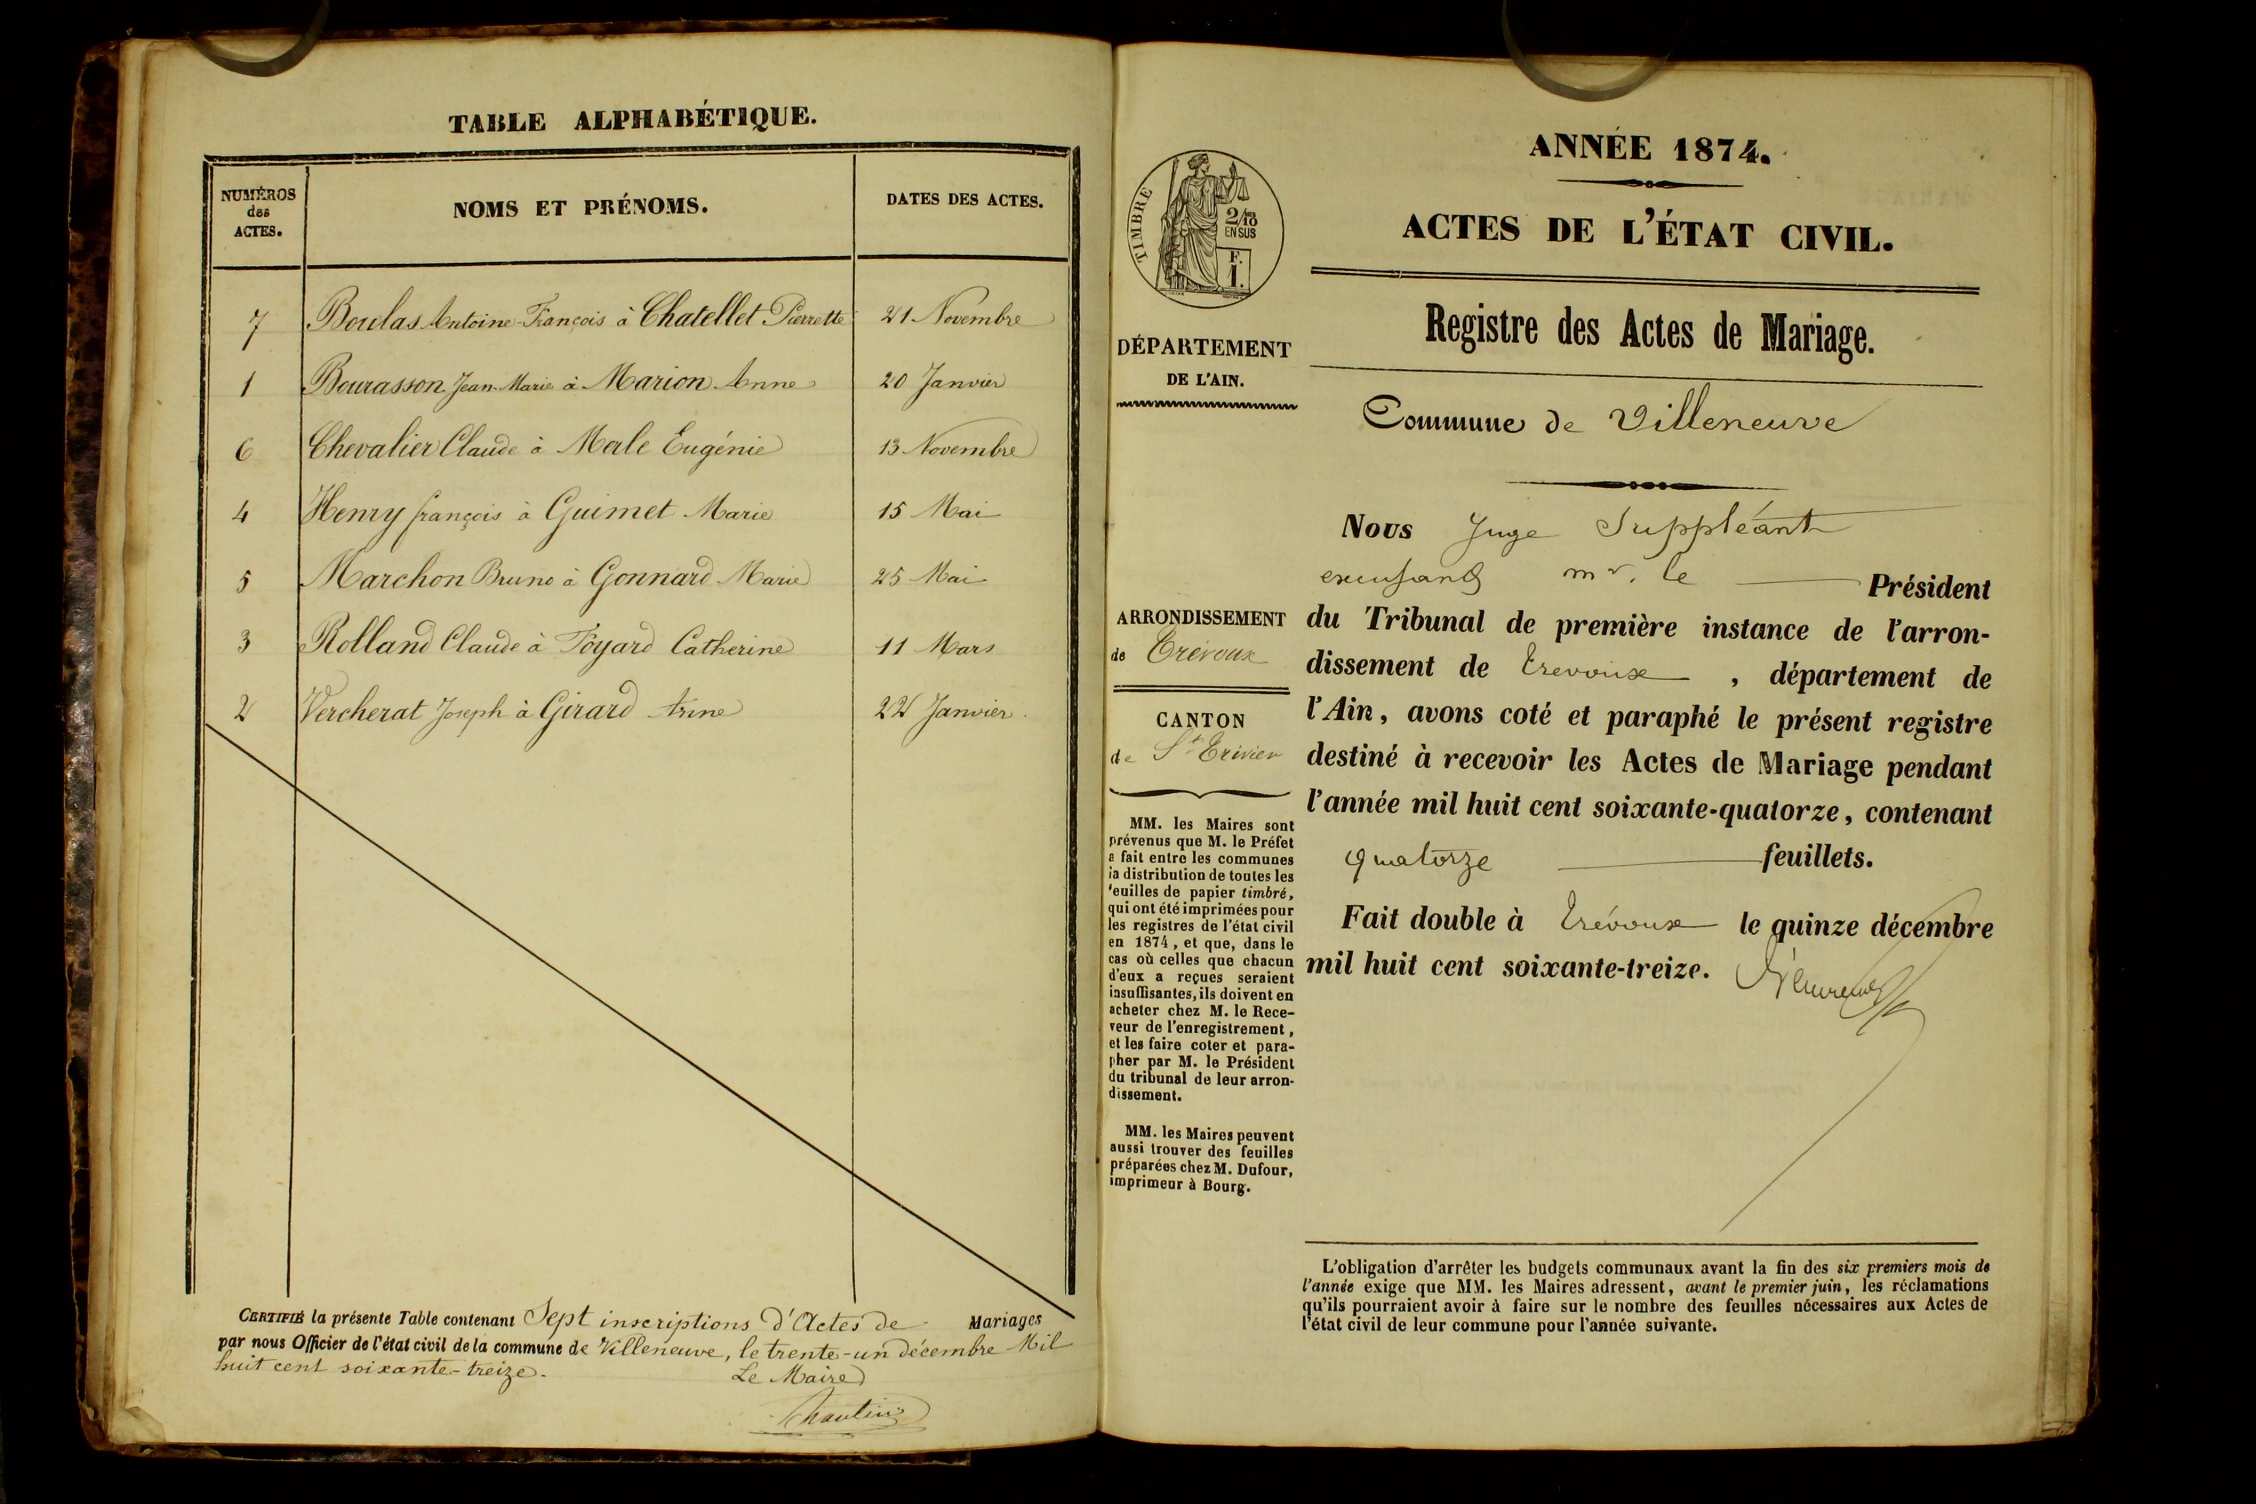 TABLE ALPHABÉTIQUE.
NUMÉROS des ACTES. NOMS ET PRÉNOMS. DATES DES ACTES.
7 Boulas Antoine-François à Chatellet Pierrette 21 Novembre
1 Bourasson Jean-Marie à Marion Anne 20 Janvier
6 Chevalier Claude à Merle Eugénie 13 Novembre
4 Henry françois à Guimet Marie 15 Mai
5 Marchon Bruno à Gonnard Marie 25 Mai
3 Rolland Claude à Foyard Catherine 11 Mars
2 Vercherat Joseph à Girard 22 Janvier.
CERTIFIÉ la présente Table contenant Sept inscriptions d'Actes de Mariages
par nous Officier de l'état civil de la commune de Villeneuve, le trente-un décembre Mil
huit cent soixante-treize.
Le Maire
TIMBRE
2/10
EN SUS
F.
1.
DÉPARTEMENT
DE L'AIN.
ARRONDISSEMENT
de Trévoux
CANTON
de St Trivier
MM. les Maires sont
prévenus que M. le Préfet
a fait entre les communes
la distribution de toutes les
feuilles de papier timbré,
qui ont été imprimées pour
les registres de l'état civil
en 1874, et que, dans le
cas où celles que chacun
d'eux a reçues seraient
insuffisantes, ils doivent en
acheter chez M. le Rece-
veur de l'enregistrement,
et les faire coter et para-
pher par M. le Président
du tribunal de leur arron-
dissement.
MM. les Maires peuvent
aussi trouver des feuilles
préparées chez M. Dufour,
imprimeur à Bourg.
ANNÉE 1874.
ACTES DE L'ÉTAT CIVIL.
Registre des Actes de Mariage.
Commune de Villeneuve
Nous Juge Suppléant
mr. le Président
du Tribunal de première instance de l'arron-
dissement de Trevoux, département de
l'Ain, avons coté et paraphé le présent registre
destiné à recevoir les Actes de Mariage pendant
l'année mil huit cent soixante-quatorze, contenant
quatorze feuillets.
Fait double à Trévoux le quinze décembre
mil huit cent soixante-treize.
L'obligation d'arrêter les budgets communaux avant la fin des six premiers mois de
l'année exige que MM. les Maires adressent, avant le premier juin, les réclamations
qu'ils pourraient avoir à faire sur le nombre des feuilles nécessaires aux Actes de
l'état civil de leur commune pour l'année suivante.